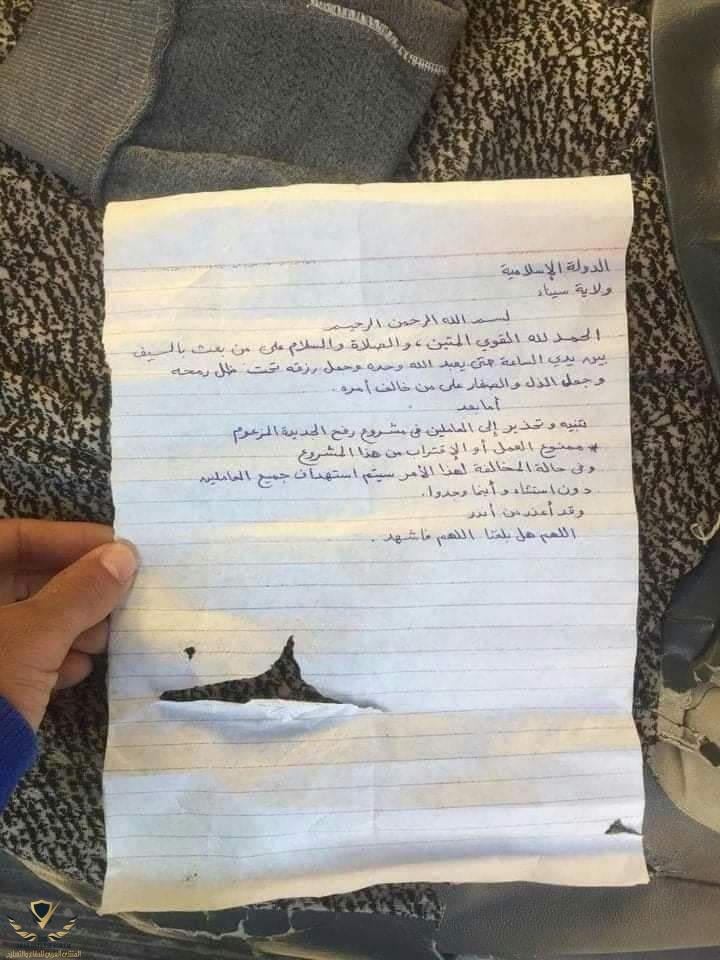 الدولة الإسلامية
ولاية سيناء
بسم الله الرحمن الرحيم
الحمد لله القوي المتين، والصلاة والسلام على من بعث بالسيف
بين يدي الساعة حتى يعبد الله وحده وجعل رزقه تحت ظل رمحه
وجعل الذل والصغار على من خالف أمره.
أما بعد
تنبيه وتحذير إلى العاملين في مشروع رفح الجديدة المزعوم
* ممنوع العمل أو الإقتراب من هذا المشروع
وفي حالة المخالفة لهذا الأمر سيتم استهداف جميع العاملين
دون استثناء وأينما وجدوا.
وقد أعذر من أنذر
اللهم هل بلغنا اللهم فاشهد.
المنتدى العربي للدفاع والتسليح